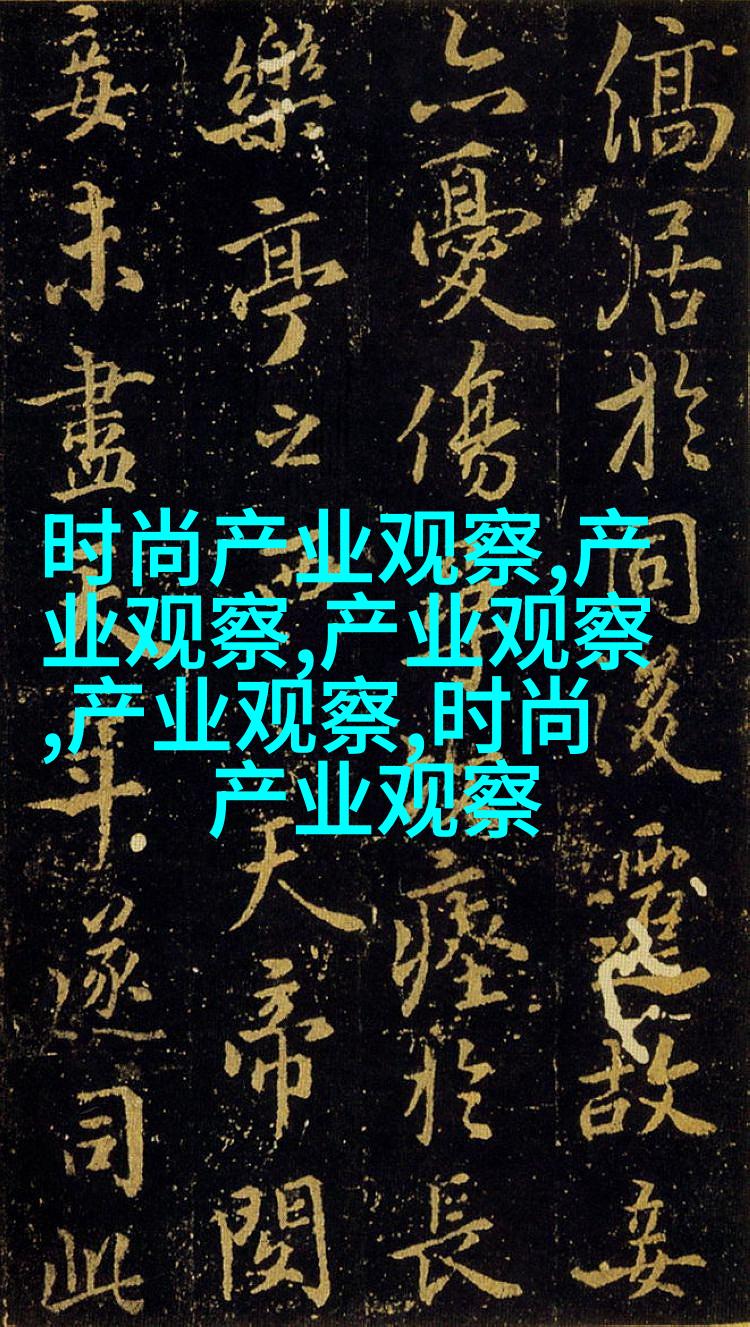 時尚产业观察,产
业观察,产业观察
,产业观察,时尚
产业观察
居於同後遷故妾
亦憂傷瘞於長
樂亭之西天帝閔
妾未盡天年遂司此